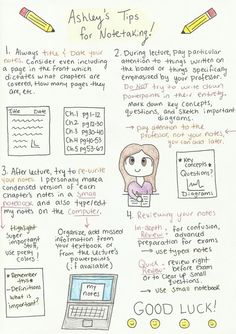 Ashley's Tips
for Notetaking!
1. Always Title & Date your
notes. Consider even including
a page in the front which
dictates what chapters are
covered, how many pages they
are, etc.
Title Date
Ch.1 pg 1-12
Ch.2 pg 12-30
Ch.3 pg 30-40
Ch.4 pg 40-53
Ch.5 pg 53-67
2. During lecture, pay particular
attention to things written on
the board or things specifically
emphasized by your professor.
Do NOT try to write down
powerpoints in their entirety.
Mark down key concepts,
questions, and sketch important
diagrams.
→ pay attention to the
professor, not your notes,
you can add later.
* Key
concepts
Questions?
Diagrams
3. After lecture, try to re-write
your notes. I personally make a
condensed version of each
chapter's notes in a small
notebook and also type/edit
my notes on the computer.
Highlight
Super
important
stuff,
use pretty
colors!
Organize, add missed
information from
your textbook or
from the lecture's
powerpoints
(if available)
* Remember
this *
-Definitions
What is
important?
my
notes
4. Reviewing your notes
In-depth Review: for confusion,
advanced preparation
for exams
→ use typed notes
Quick Review: review right
before exam
or to clear up small
questions.
→ use small notebook
GOOD LUCK!